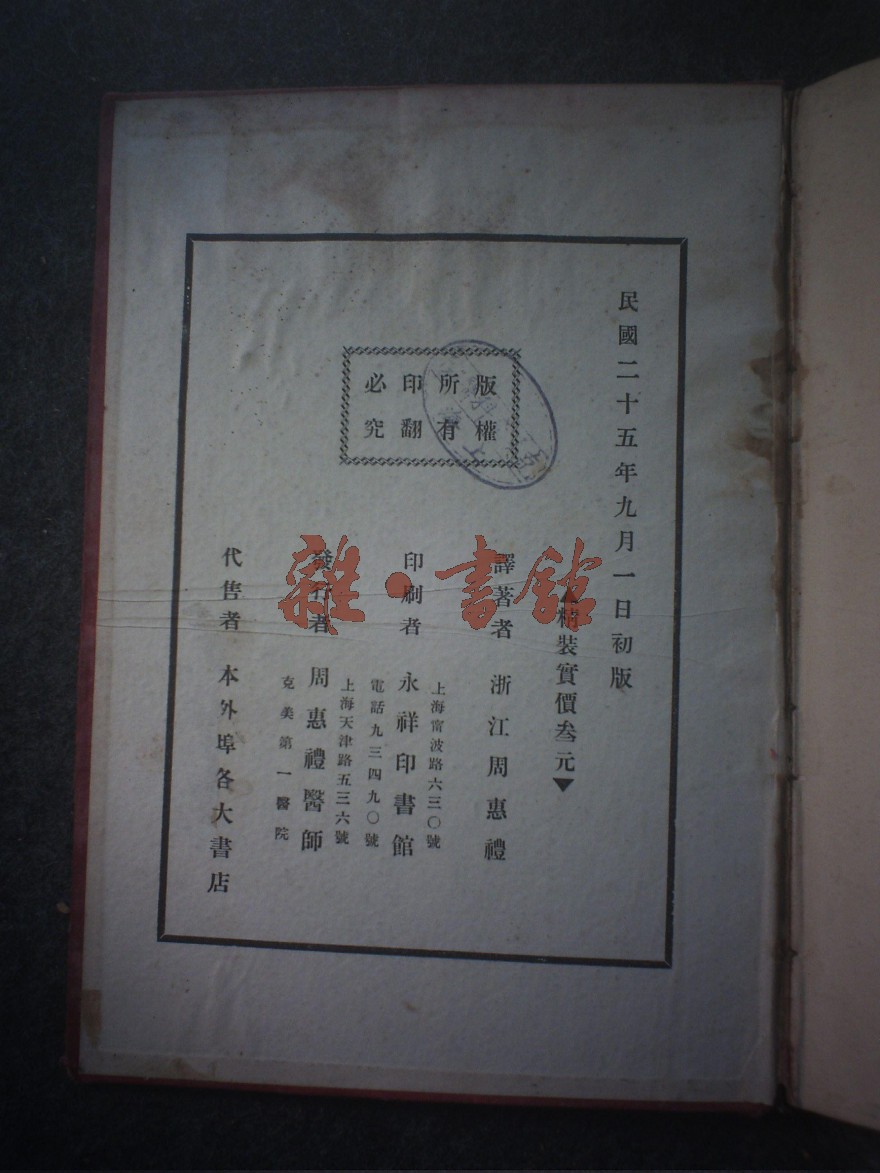 民國二十五年九月一日初版
▲精裝實價叁元▼
版權
所有
印翻
必究
譯著者 浙江周惠禮
上海甯波路六三〇號
印刷者 永祥印書館
電話九三四九〇號
上海天津路五三六號
發行者 周惠禮醫師
克美第一醫院
代售者 本外埠各大書店
雜·書館